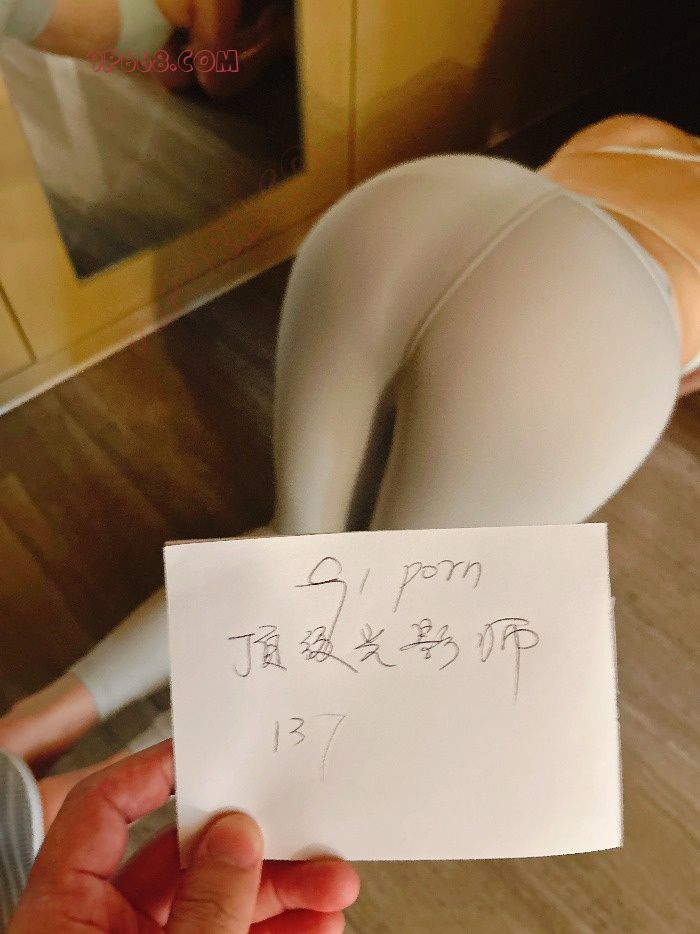 9P668.COM
91 porn
顶级光影师
137